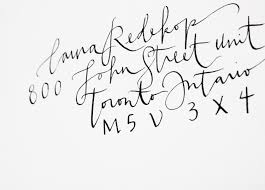 Laura Redekop
800 John Street unit
Toronto Ontario
M5V 3X4